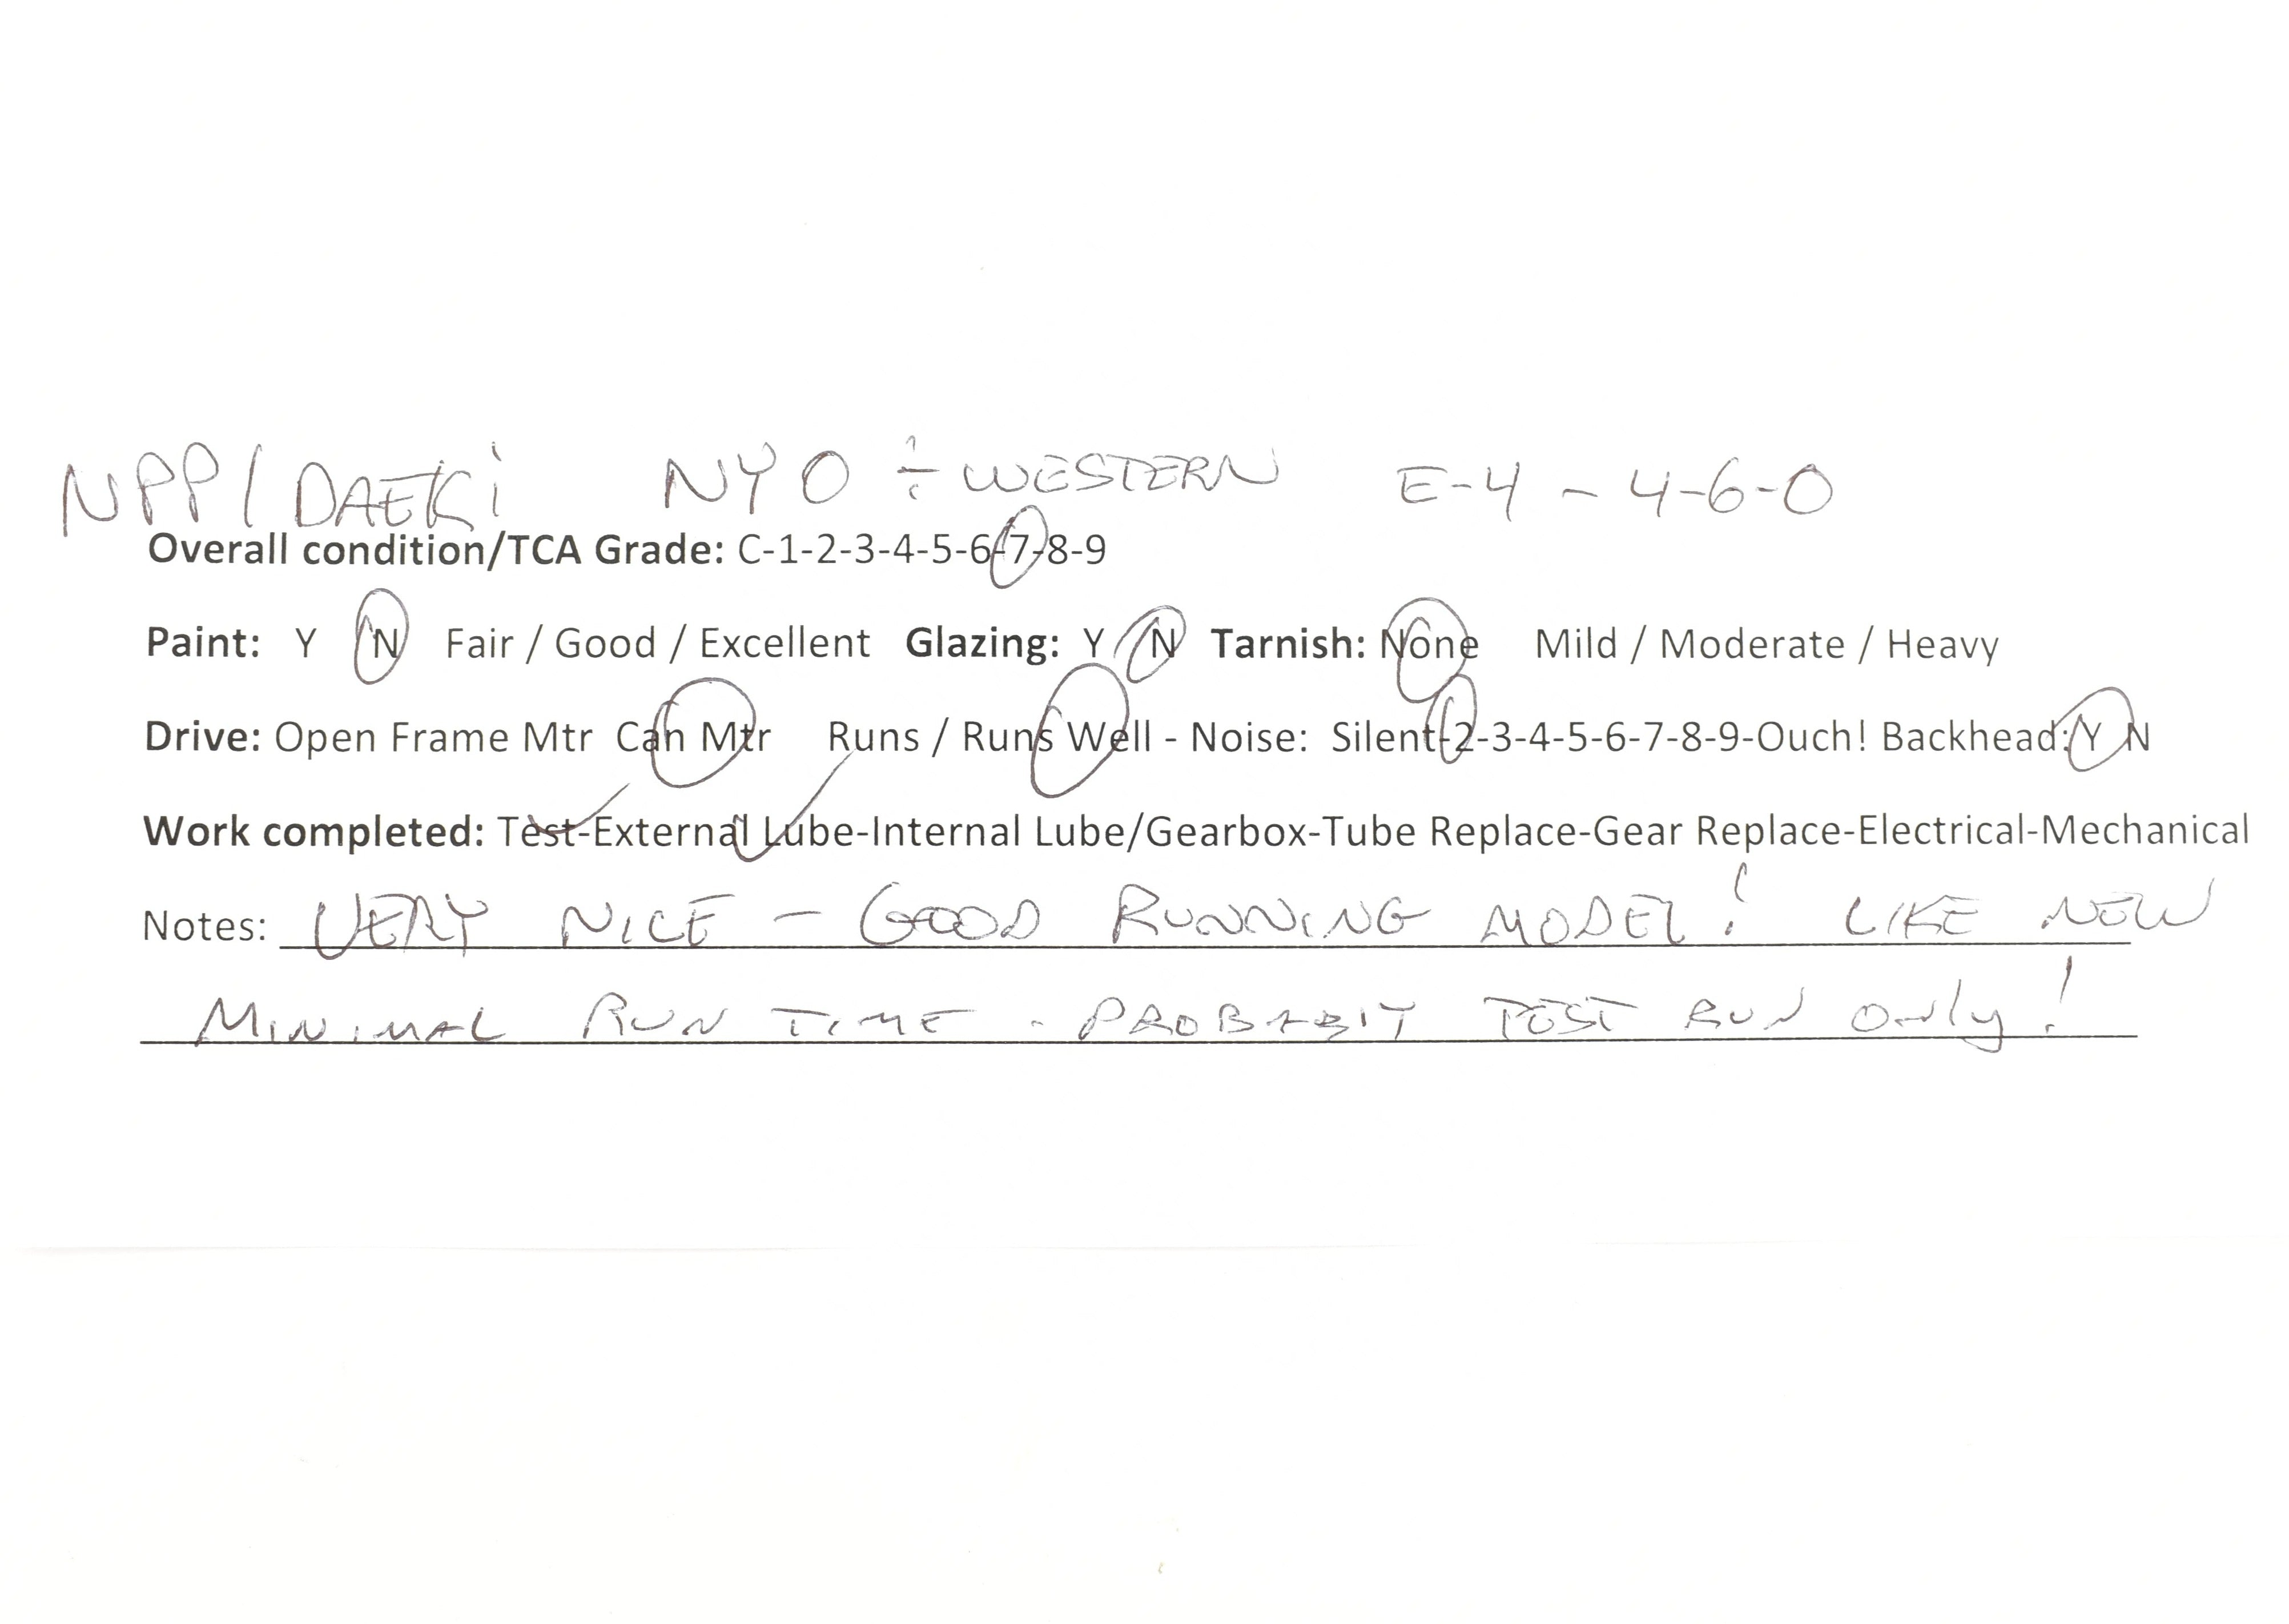 NPP/DAEKi NYO & WESTERN E-4 - 4-6-0
Overall condition/TCA Grade: C-1-2-3-4-5-6-7-8-9
Paint: Y N Fair / Good / Excellent Glazing: Y N Tarnish: None Mild / Moderate / Heavy
Drive: Open Frame Mtr Can Mtr Runs / Runs Well - Noise: Silent-2-3-4-5-6-7-8-9-Ouch! Backhead: Y N
Work completed: Test-External Lube-Internal Lube/Gearbox-Tube Replace-Gear Replace-Electrical-Mechanical
Notes: VERY NICE - GOOD RUNNING MODEL! LIKE NEW
MINIMAL RUN TIME - PROBABLY TEST RUN ONLY!